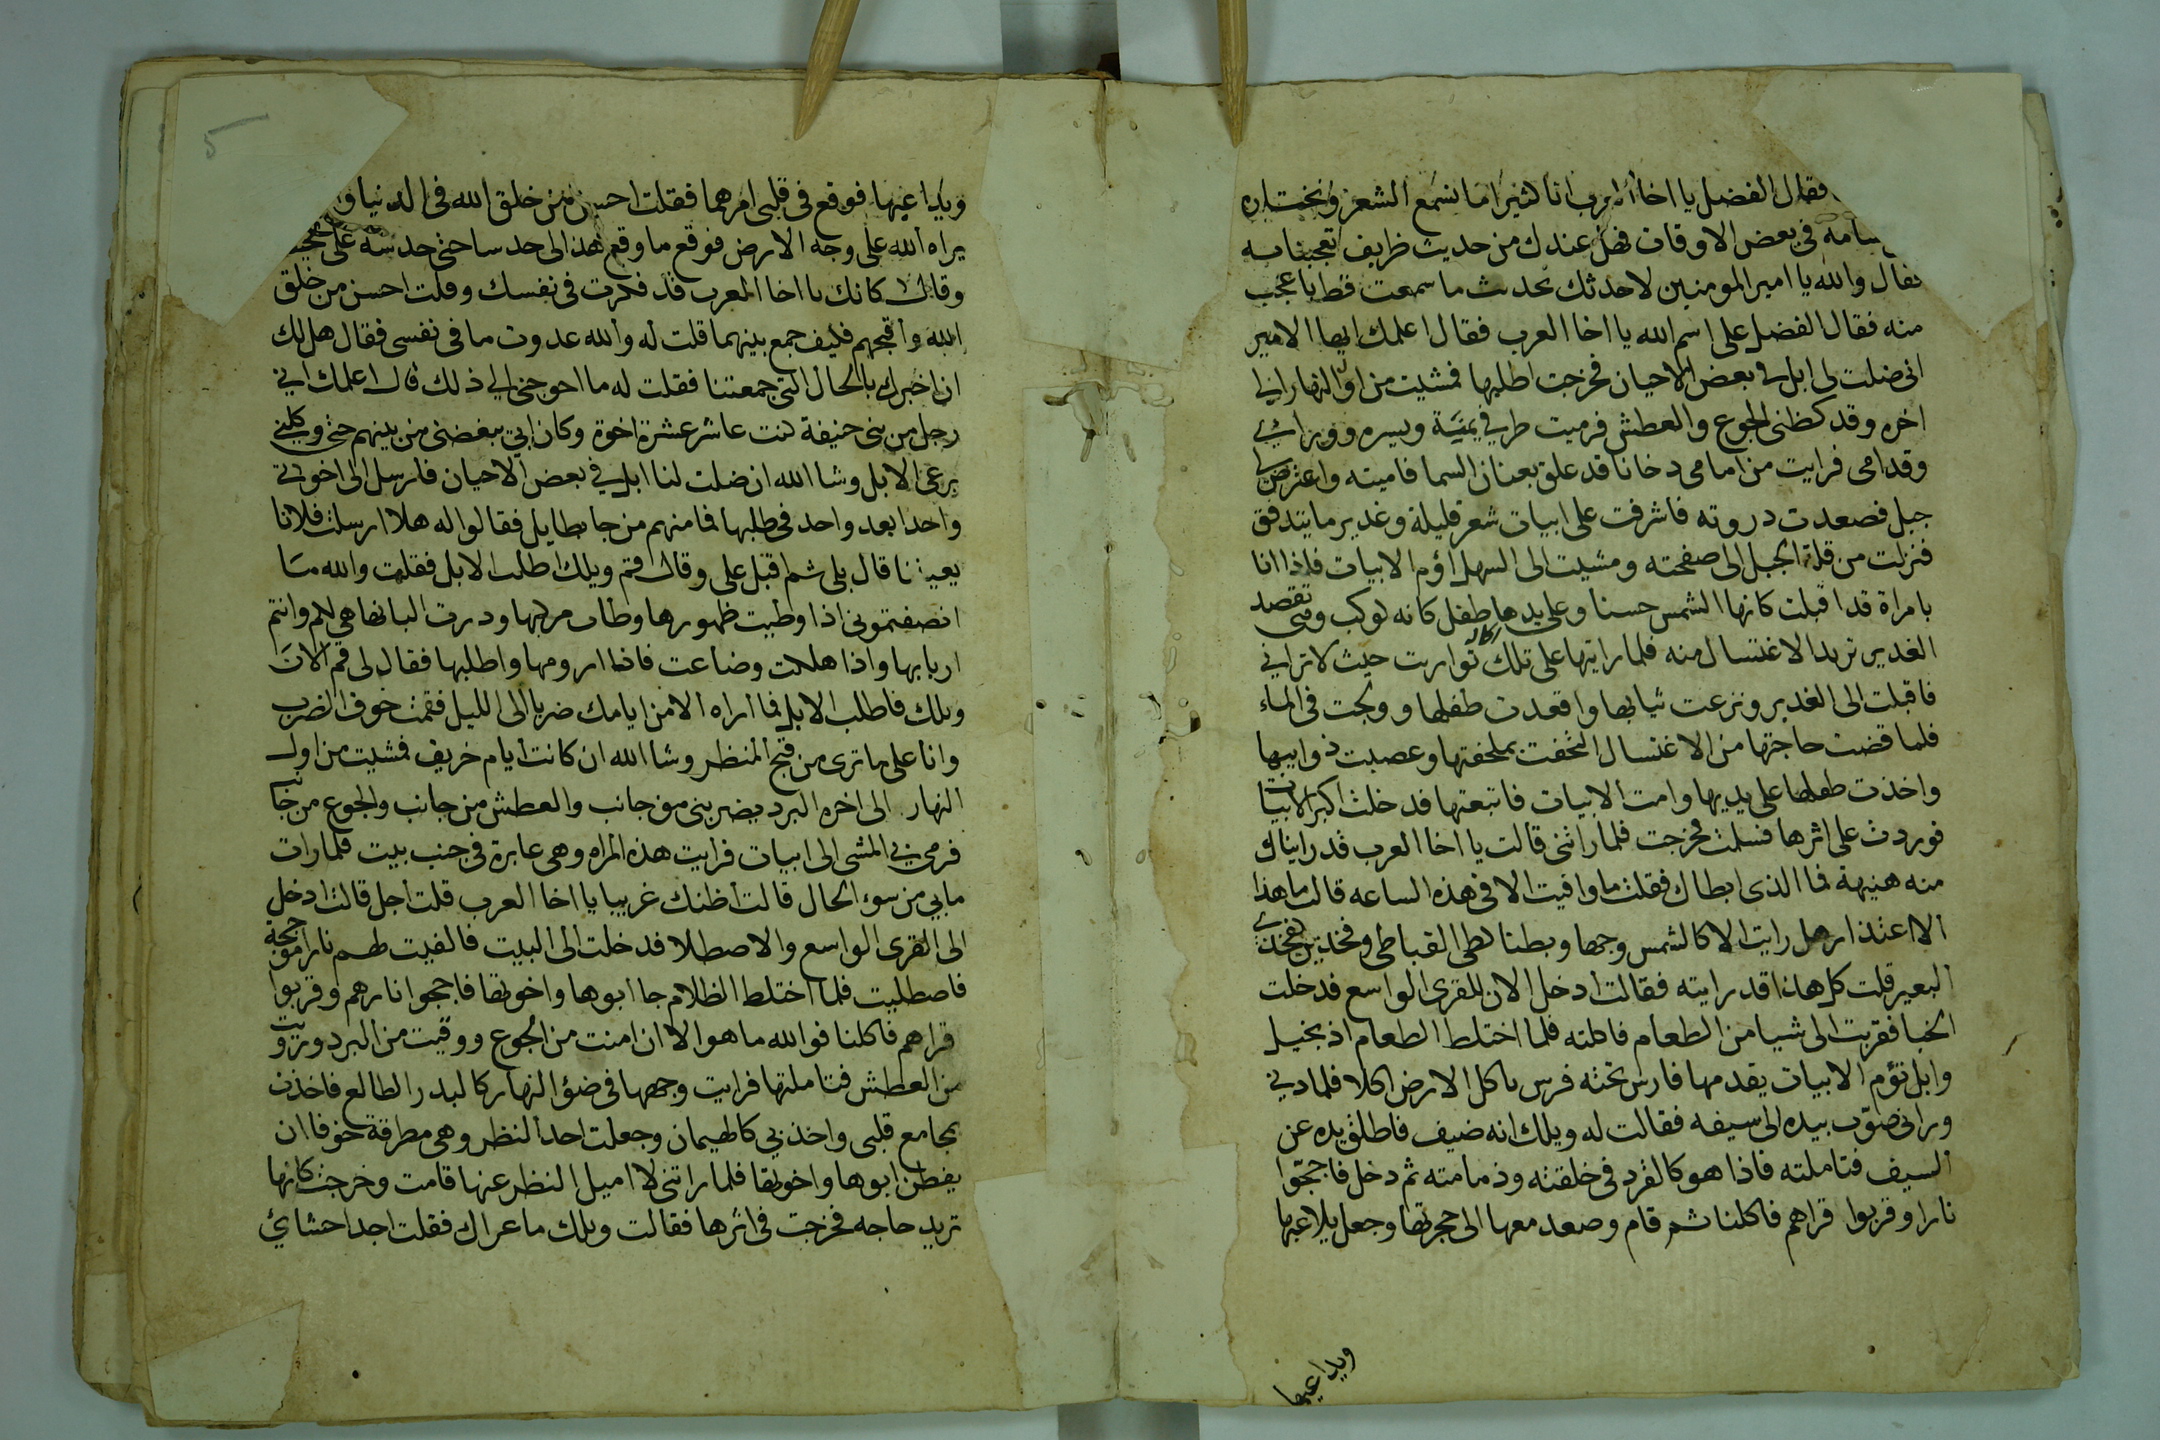 فقال الفضل يا اخا العرب انا كثيرا ما نسمع الشعر ونختاره
سامه في بعض الاوقات فهل عندك من حديث ظريف تعجبنا به
فقال والله يا امير المومنين لاحدثك بحدث ما سمعت قط با عجب
منه فقال الفضل على اسم الله يا اخا العرب فقال اعلمك ايها الامير
انى ضلت لى ابل في بعض الاحيان فخرجت اطلبها فمشيت من اول النهار الي
اخره وقد كظنى الجوع والعطش فرميت طرفي يمنة ويسره وورائي
وقدامى فرايت من امامى دخانا قد علق بعنان السما فاميته واعترض لي
جبل فصعدت دروته فاشرفت على ابيات شعر قليلة وغدير ما يتدفق
فنزلت من قلة الجبل الى صفحته ومشيت الى السهل اؤم الابيات فاذا انا
بامراة قد اقبلت كانها الشمس حسنا وعلى يدها طفل كانه كوكب وهى تقصد
الغدير تريد الاغتسال منه فلما رايتها على تلك الحاله تواريت حيث لا تراني
فاقبلت الى الغدير ونزعت ثيابها واقعدت طفلها وولجت في الماء
فلما قضت حاجتها من الاغتسال التحفت بملحفتها وعصبت ذوايبها
واخذت طفلها على يديها وامت الابيات فاتبعتها فدخلت اكبر الابيات
فوردت على اثرها فسلمت فخرجت فلما راتنى قالت يا اخا العرب قد رايناك
منه هنيهة فما الذى ابطاك فقلت ما وافيت الا في هذه الساعه قالت ما هذا
الا اعتذار هل رايت الا كالشمس وجها وبطنا كطى القباطى وفخذين كفخذي
البعير قلت كل هاذا قد رايته فقالت ادخل الان للقرى الواسع فدخلت
الخبا فقربت الى شيا من الطعام فاكلته فلما اختلط الطعام اذ بخيل
وابل تؤم الابيات يقدمها فارس تحته فرس ياكل الارض اكلا فلما دني
وراني صوّب بيده الى سيفه فقالت له ويلك انه ضيف فاطلق يده عن
السيف فتاملته فاذا هو كالقرد في خلقته وذمامته ثم دخل فاججّوا
نارا وقربوا قراهم فاكلنا ثم قام وصعد معها الى حجرتها وجعل يلاعبها
ويداعبها
5
ويداعبها فوقع في قلبى امرهما فقلت احسن من خلق الله في الدنيا
يراه الله على وجه الارض فوقع ما وقع هذا الى حدسا حتى حدسه على
وقال كانك يا اخا العرب قد فكرت في نفسك وقلت احسن من خلق
الله واقبحهم فكيف جمع بينهما قلت له والله عدوت ما في نفسى فقال هل لك
ان اخبرك بالحال التى جمعتنا فقلت له ما احوجنى الي ذلك قال اعلمك اني
رجل من بنى حنيفة كنت عاشر عشرة اخوة وكان ابي يبغضنى من بينهم حتى وكلني
برعى الابل وشا الله ان ضلت لنا ابل في بعض الاحيان فارسل الى اخوتي
واحدا بعد واحد في طلبها فما منهم من جا بطايل فقالوا له هلا ارسلت فلانا
يعيننا قال بلى ثم اقبل على وقال قم ويلك اطلب الابل فقلت والله ما
انصفتمونى اذا وطيت ظهورها وطاب مركبها ودرت البانها هي لكم وانتم
اربابها واذا هلكت وضاعت فانا ارومها واطلبها فقال لى قم الان
ويلك فاطلب الابل فما اراه الا من ايامك ضربا الى الليل فقمت خوف الضرب
وانا على ما ترى من قبح المنظر وشا الله ان كانت ايام خريف فمشيت من اول
النهار الى اخره البرد يضربنى من جانب والعطش من جانب والجوع من جانب
فرمى بي المشى الى ابيات فرايت هذه المراه وهى عابرة في جنب بيت فلما رات
ما بي من سوء الحال قالت اظنك غريبا يا اخا العرب قلت اجل قالت ادخل
الى القرى الواسع والاصطلا فدخلت الى البيت فالفيت لهم نارا موججة
فاصطليت فلما اختلط الظلام جا ابوها واخوتها فاججوا نارهم وقربوا
قراهم فاكلنا فوالله ما هو الا ان امنت من الجوع ووقيت من البرد ورويت
من العطش فتاملتها فرايت وجهها في ضؤ النهار كالبدر الطالع فاخذت
بجامع قلبى واخذ بي كالهيمان وجعلت احد النظر وهى مطرقة خوفا ان
يفطن ابوها واخوتها فلما راتنى لا اميل النظر عنها قامت وخرجت كانها
تريد حاجه فخرجت في اثرها فقالت ويلك ما عراك فقلت اجد احشائي